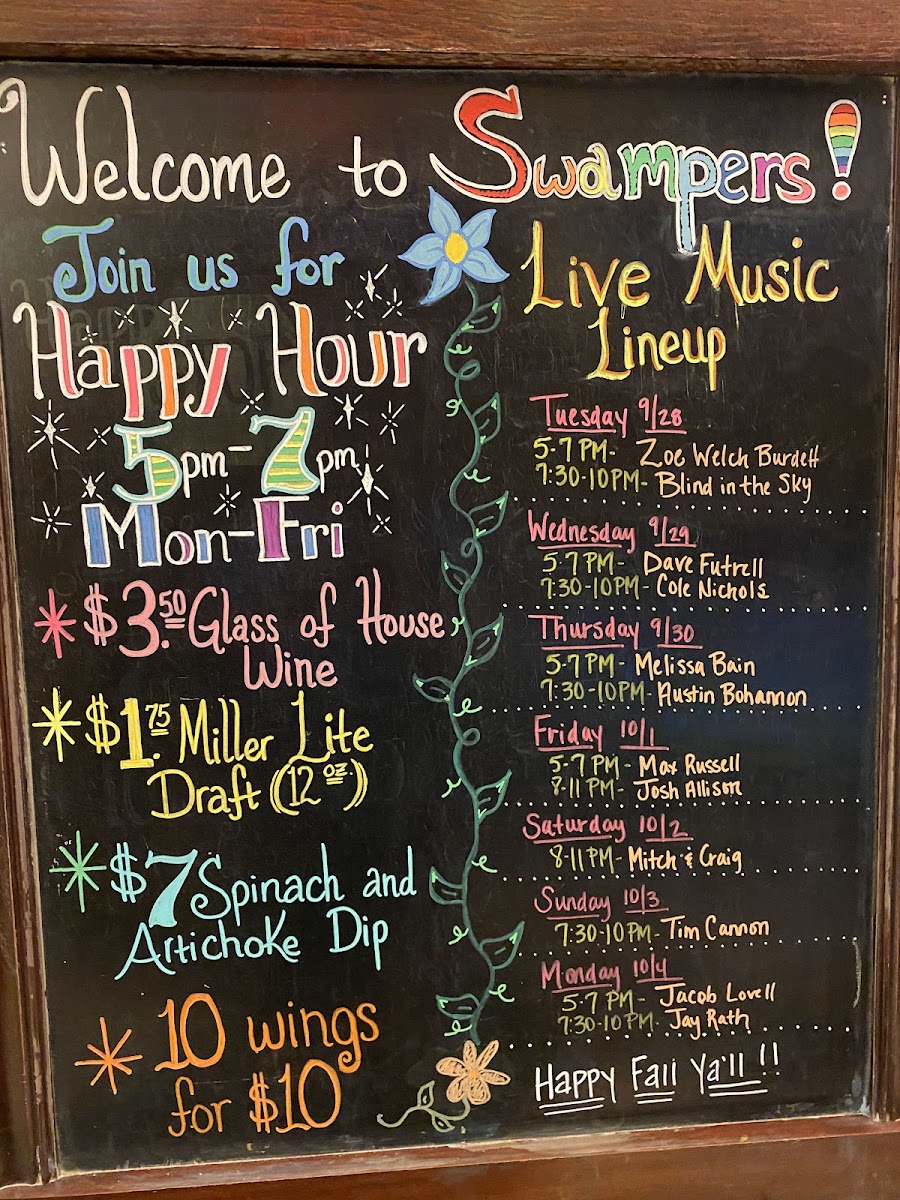 Welcome to Swampers!
Join us for
Happy Hour
5pm-7pm
Mon-Fri
$3.50 Glass of House
Wine
$1.75 Miller Lite
Draft (12 oz.)
$7 Spinach and
Artichoke Dip
10 wings
for $10
Live Music
Lineup
Tuesday 9/28
5-7 PM- Zoe Welch Burdett
7:30-10PM- Blind in the Sky
Wednesday 9/29
5-7 PM- Dave Futrell
7:30-10PM- Cole Nichols
Thursday 9/30
5-7 PM- Melissa Bain
7:30-10PM- Austin Bohannon
Friday 10/1
5-7 PM- Max Russell
8-11 PM- Josh Allison
Saturday 10/2
8-11 PM- Mitch & Craig
Sunday 10/3
7:30-10PM- Tim Cannon
Monday 10/4
5-7 PM- Jacob Lovell
7:30-10PM- Jay Rath
Happy Fall Ya'll !!